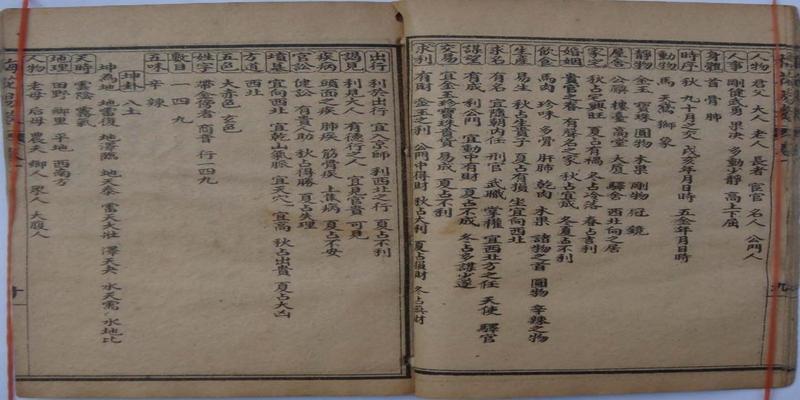 人物 君父 大人 老人 長者 宦官 名人 公門人
人事 剛健武勇 果決 多動少靜 高上下屈
身體 首 骨 肺
時序 秋 九十月之交 戌亥年月日時 五金年月日時
動物 馬 天鵝 獅 象
靜物 金玉 寶珠 圓物 木果 剛物 冠 鏡
屋舍 公廨 樓臺 高堂 大廈 驛舍 西北向之居
家宅 秋占宅興旺 夏占有禍 冬占冷落 春占吉利
婚姻 貴官之眷 有聲名之家 秋占宜成 冬夏占不利
飲食 馬肉 珍味 多骨 肝肺 乾肉 木果 諸物之首 圓物 辛辣之物
生產 易生 秋占生貴子 夏占有損 坐宜向西北
求名 有名 宜隨朝內任 刑官 武職 掌權 宜西北方之任 天使 驛官
謀望 有成 利公門 宜動中有財 夏占不成 冬占多謀少遂
交易 宜金玉珍寶珠貴貨 易成 夏占不利
求利 有財 金玉之利 公門中得財 秋占大利 夏占損財 冬占無財
出行 利於出行 宜入京師 利西北之行 夏占不利
謁見 利見大人 有德行之人 宜見官貴 可見
疾病 頭面之疾 肺疾 筋骨疾 上焦病 夏占不安
官訟 健訟 有貴人助 秋占得勝 夏占失理
墳墓 宜向西北 宜乾山氣脈 宜天穴 宜高 秋占出貴 夏占大凶
方道 西北
五色 大赤色 玄色
姓字 帶金傍者 商音 行一四九
數目 一 四 九
五味 辛 辣
坤卦 八土
坤為地 地雷復 地澤臨 地天泰 雷天大壯 澤天夬 水天需 水地比
天時 雲陰 霧氣
地理 田野 鄉里 平地 西南方
人物 老母 后母 農人 鄉人 眾人 大腹人